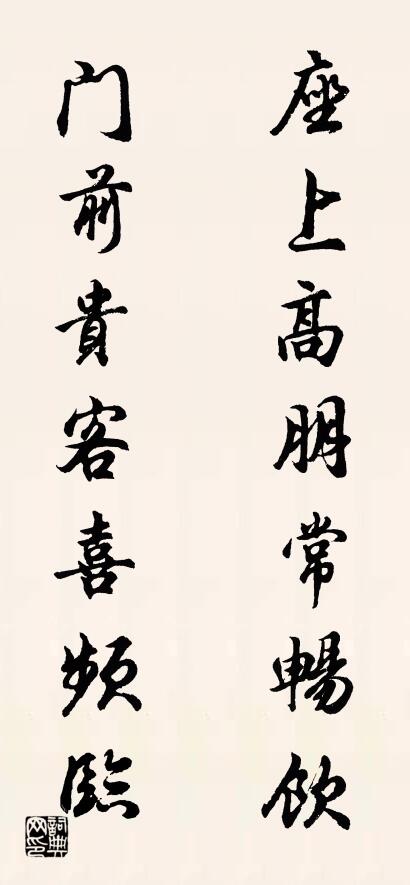 座上高朋常暢飲
门前貴客喜頻臨
詞典网印